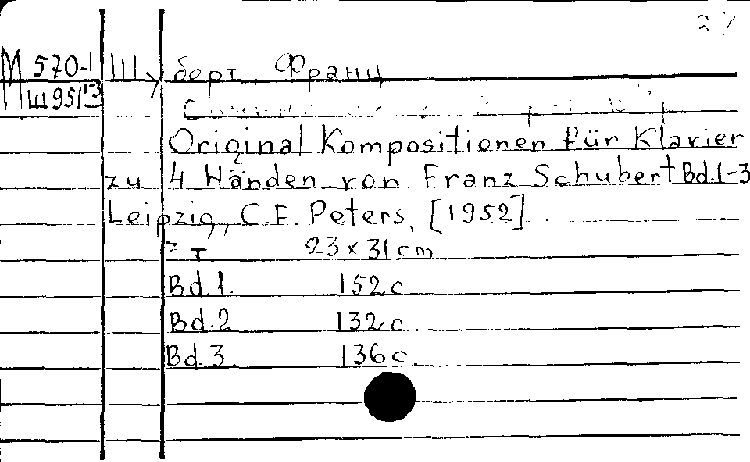 М 570-1 Шуберт, Франц
Ш95/3
Original Kompositionen für Klavier
zu 4 Händen von Franz Schubert Bd.1-3
Leipzig, C.F. Peters, [1952]
т 23 x 31 cm
Bd.1. 152 c.
Bd.2 132 c.
Bd.3 136 c.